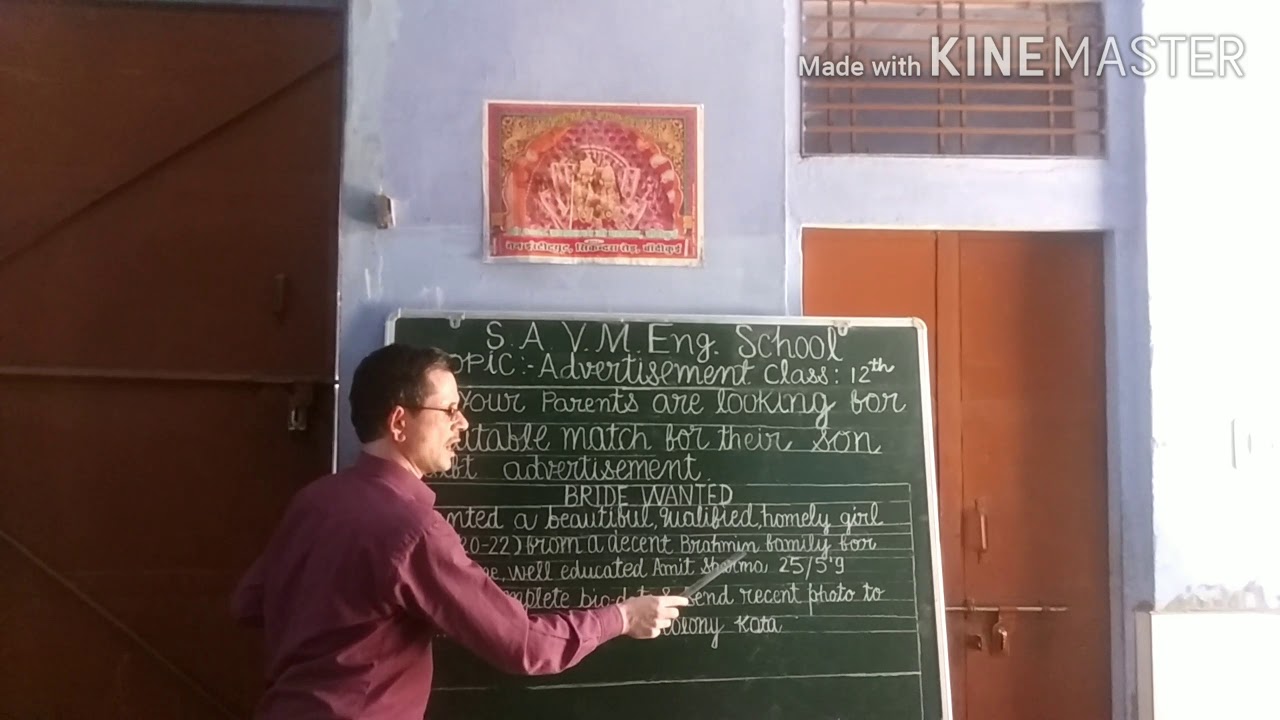 Made with KINEMASTER
सिकन्दरा रोड़, बाँदीकुई
S. A. V. M. Eng. School
OPIC:- Advertisement Class: 12th
Your Parents are looking for
itable match for their son
advertisement.
BRIDE WANTED
nted a beautiful, qualified, homely girl
20-22) from a decent Brahmin family for
well educated Amit Sharma 25/5'9
mplete bio-d send recent photo to
olony Kota